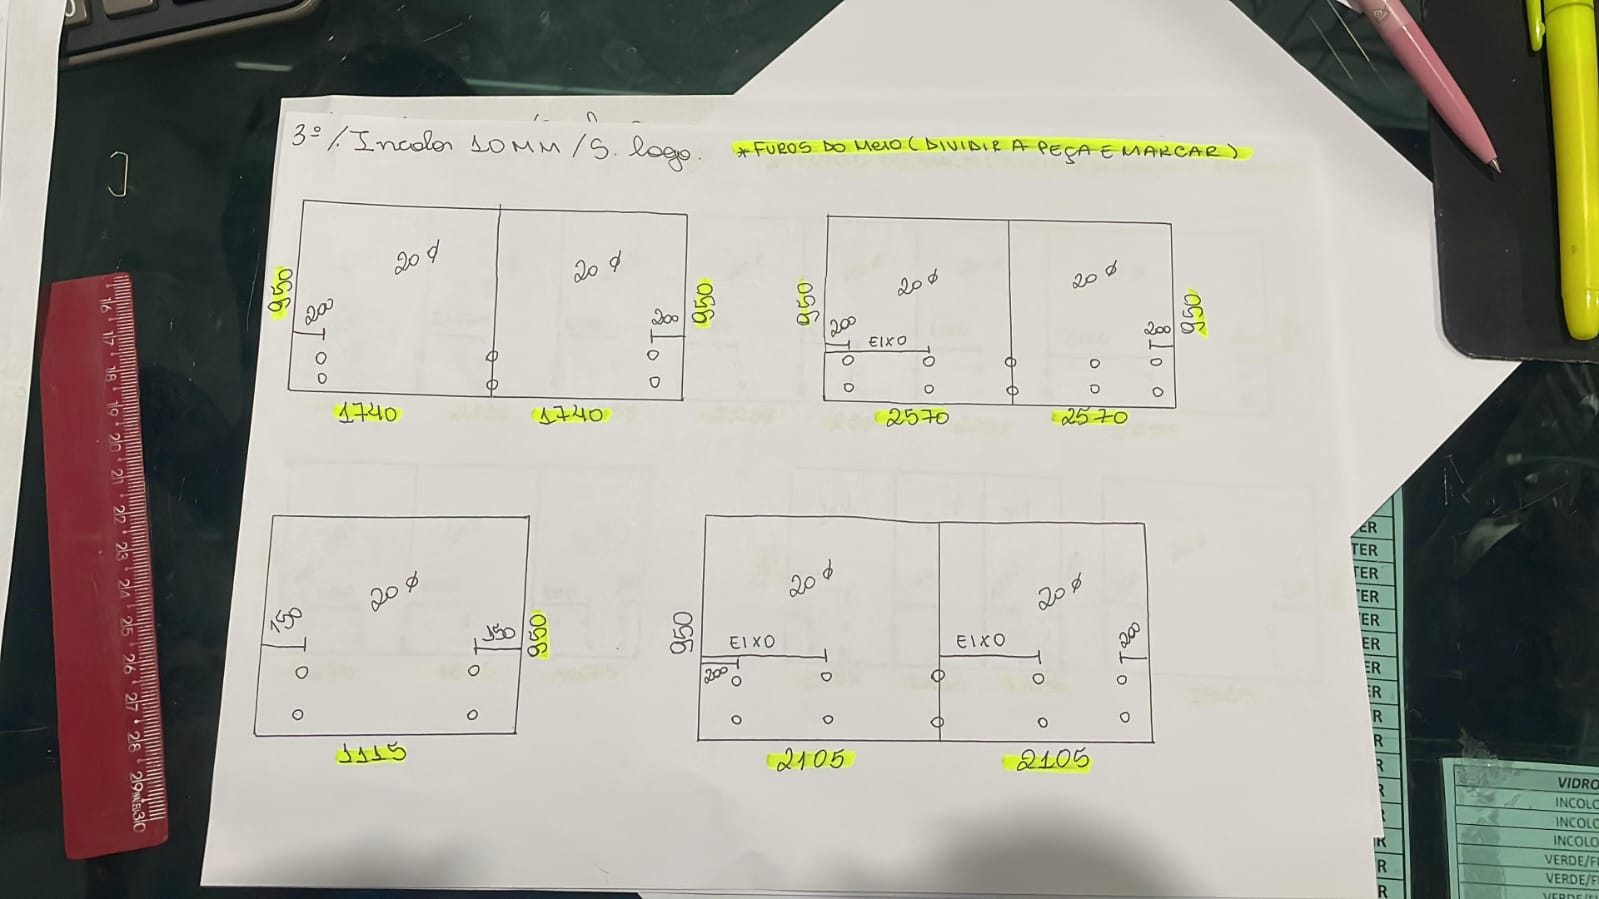 3º /. Incolor 10MM / S. logo. * FUROS DO MEIO (DIVIDIR A PEÇA E MARCAR)
20 ϕ 20 ϕ
950 200 200 950
1740 1740
20 ϕ 20 ϕ
950 200 EIXO 200 950
2570 2570
20 ϕ
150 150 950
1115
20 ϕ 20 ϕ
950 EIXO EIXO 200
200
2105 2105
16 17 18 19 20 21 22 23 24 25 26 27 28 29 30
ER
TER
TER
ER
ER
ER
ER
R
R
R
R
R
R
R
VIDRO
INCOLO
INCOLO
INCOLO
VERDE/F
VERDE/F